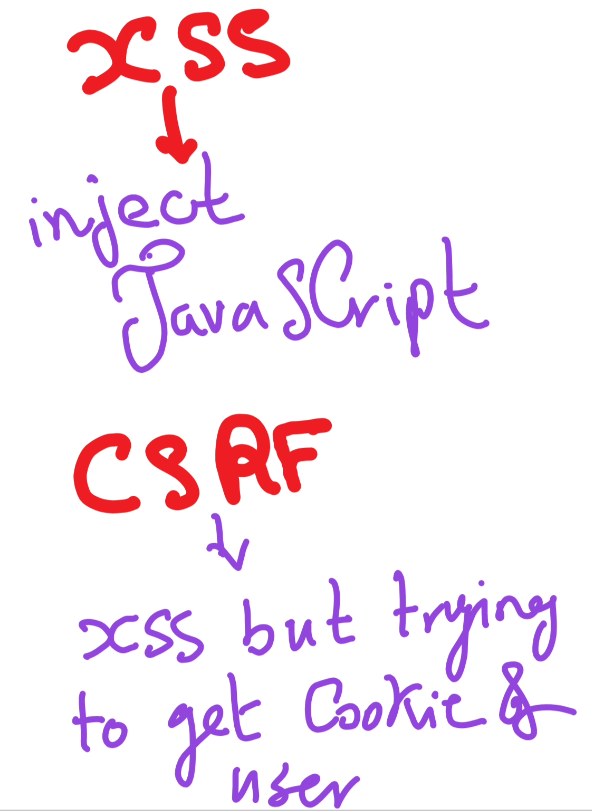 XSS
inject
JavaScript
CSRF
XSS but trying
to get Cookie &
user